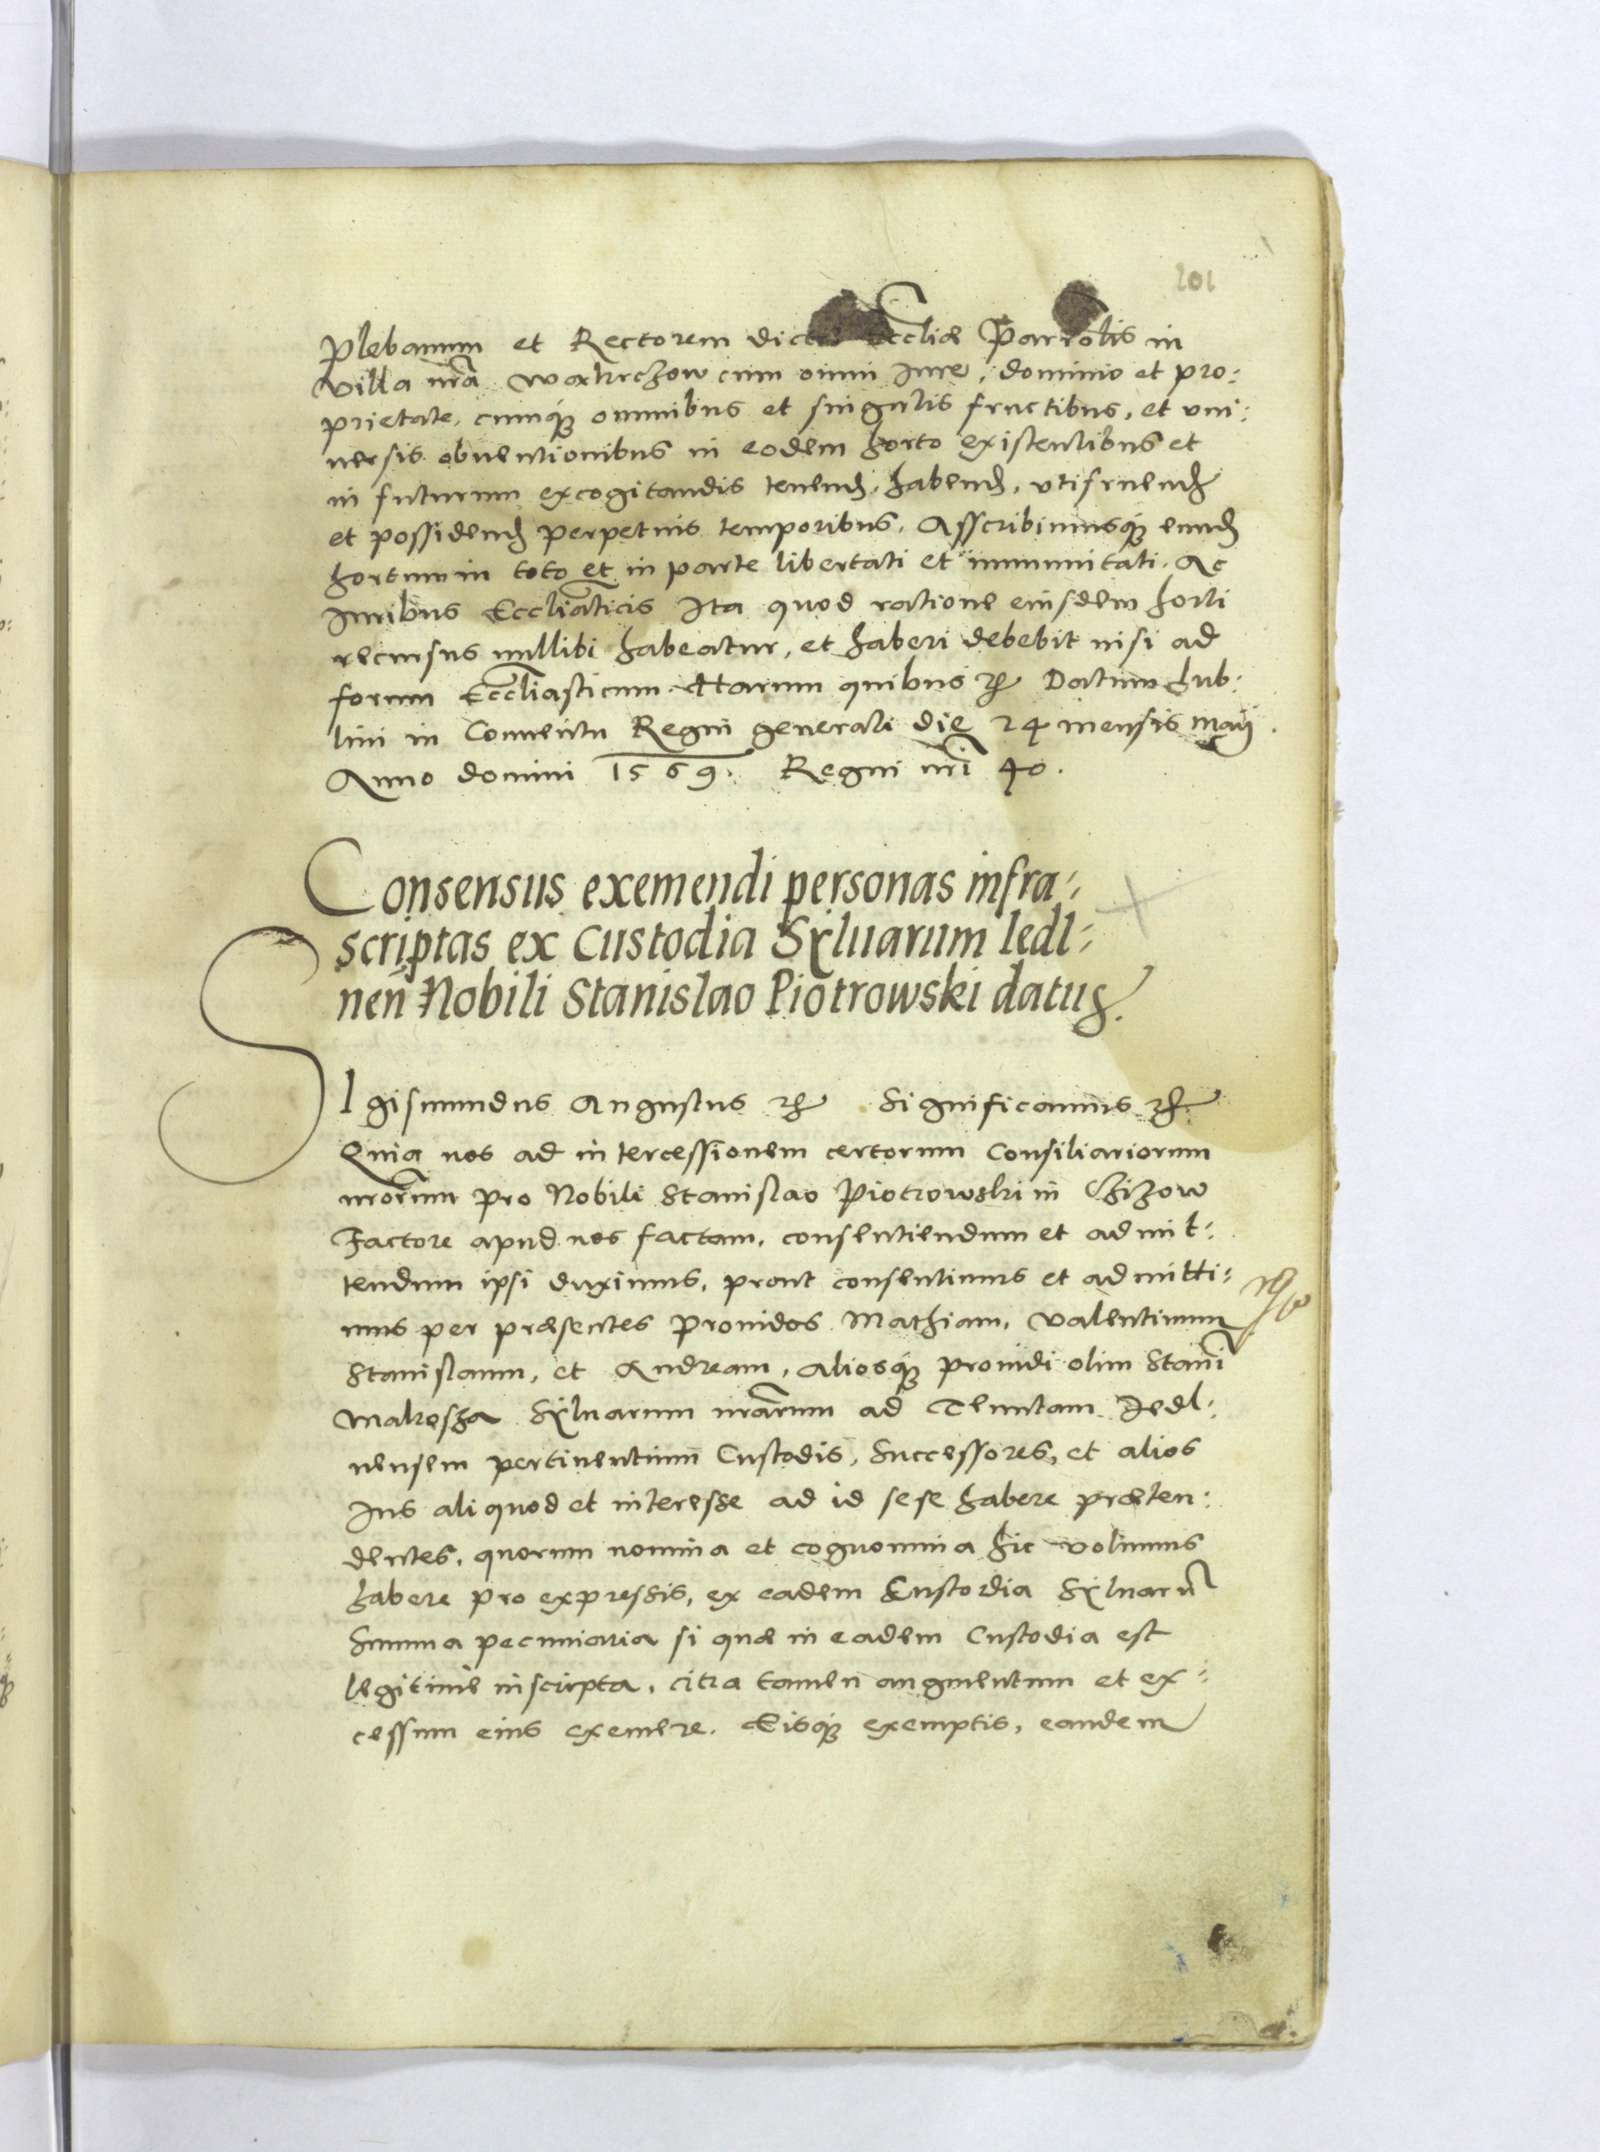 101
Plebanum et Rectorem dictæ Eccliæ Parrolis in
villa nrã Wakrchzow cum omni Iure, dominio et pro:
prietate, cumq́ omnibus et singulis fructibus, et vni:
uersis obuentionibus in eodem horto existentibus et
in futurum excogitandis tenend, habend, vtifruend
et possidend perpetuis temporibus. Asscribimusq́ eund
hortum in toto et in parte libertati et immunitati. Ac
Iuribus Eccliãticis Ita quod ratione eiusdem horti
recursus nullibi habeatur, et haberi debebit nisi ad
forum Eccliasticum. Harum quibus etc Datum Lub:
lini in Conuentu Regni generali die 24 mensis Maij.
Anno domini 1569. Regni nri 40.
Consensus exemendi personas infra:
scriptas ex Custodia Syluarum Iedl:
nen Nobili Stanislao Piotrowski datus.
SIgismundus Augustus etc Significamus etc.
Quia nos ad intercessionem certorum Consiliariorum
nrorum pro Nobili Stanislao Piotrowski in Chizow
Factore apud nos factam, consentiendum et admit:
tendum ipsi duximus, prout consentimus et admitti:
mus per præsentes Prouidos Mathiam, Valentinum
Stanislaum, et Andream, aliosq́ prouidi olim Stani
Makosza Syluarum nrarum ad Tenutam Iedl:
nensem pertinentium Custodis, Successores, et alios
Ius aliquod et interesse ad id sese habere præten:
dentes, quorum nomina et cognomina hic volumus
habere pro expressis, ex eadem Custodia Syluarũ
Summa pecuniaria si quæ in eadem Custodia est
legitime inscripta, citra tamen augmentum et ex:
cessum eius exemere. Eisq́ exemptis, eandem